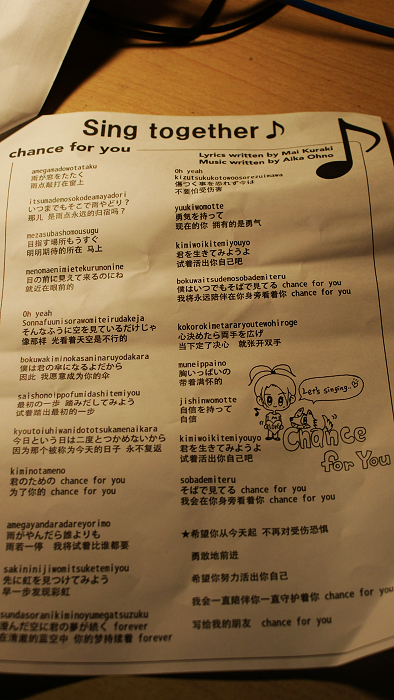 Sing together ♪
chance for you
Lyrics written by Mai Kuraki
Music written by Aika Ohno
amegamadowotataku
雨が窓をたたく
雨点敲打在窗上
itsumademosokodeamayadori
いつまでもそこで雨やどり？
那儿 是雨点永远的归宿吗？
mezasubashomousugu
目指す場所もうすぐ
明明期待的所在 马上
menomaenimietekurunonine
目の前に見えて来るのにね
就近在眼前的
Oh yeah
Sonnafuunisorawomiteirudakeja
そんなふうに空を見ているだけじゃ
像那样 光看着天空是不行的
bokuwakiminokasaninaruyodakara
僕は君の傘になるよだから
因此 我愿意成为你的伞
saishonoippofumidashitemiyou
最初の一歩 踏みだしてみよう
试着踏出最初的一步
kyoutoiuhiwanidototsukamenaikara
今日という日は二度とつかめないから
因为那个被称为今天的日子 永不复返
kiminotameno
君のための chance for you
为了你的 chance for you
amegayandaradareyorimo
雨がやんだら誰よりも
雨若一停 我将试着比谁都要
sakininijiwomitsuketemiyou
先に虹を見つけてみよう
早一步发现彩虹
sundasoranikiminoyumegatsuzuku
澄んだ空に君の夢が続く forever
在清澈的蓝空中 你的梦持续着 forever
Oh yeah
kizutsukukotowoosorezuimawa
傷つく事を恐れず今は
不要怕受伤害
yuukiwomotte
勇気を持って
现在的你 拥有的是勇气
kimiwoikitemiyouyo
君を生きてみようよ
试着活出你自己吧
bokuwaitsudemosobademiteru
僕はいつでもそばで見てる chance for you
我将永远陪伴在你身旁看着你 chance for you
kokorokimetararyoutewohiroge
心決めたら両手を広げ
当下定了决心 就张开双手
muneippaino
胸いっぱいの
带着满怀的
jishinwomotte
自信を持って
自信
kimiwoikitemiyouyo
君を生きてみようよ
试着活出你自己吧
sobademiteru
そばで見てる chance for you
我会在你身旁看着你 chance for you
Let's singing..
Chance
for You
★希望你从今天起 不再对受伤恐惧
勇敢地前进
希望你努力活出你自己
我会一直陪伴你一直守护着你 chance for you
写给我的朋友 chance for you